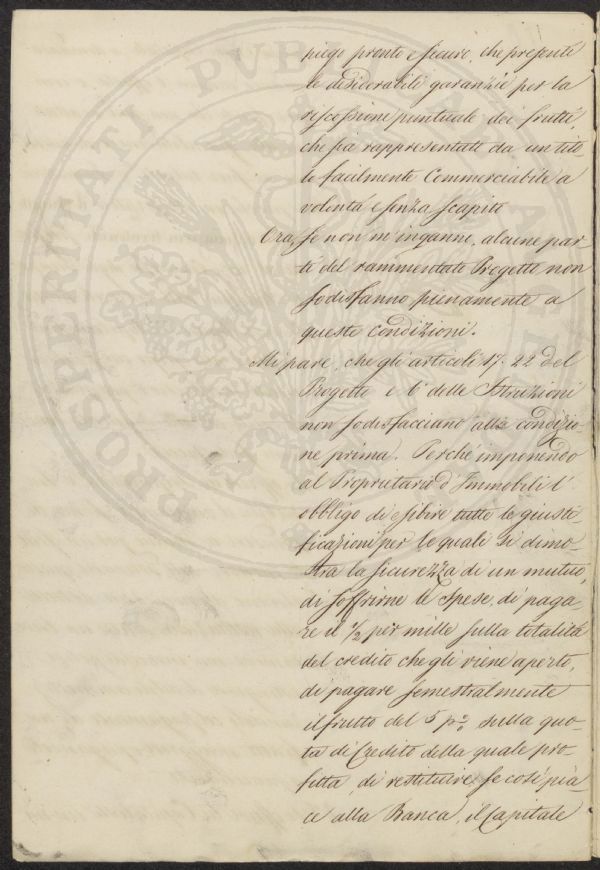 piego pronto e sicuro, che presenti
le desiderabili garanzie per la
riscossione puntuale dei frutti,
che sia rappresentato da un tito-
lo facilmente Commerciabile a
volontà e senza scapito
Ora, se non m'inganno, alcune par-
ti del rammentato Progetto non
sodisfanno pienamente a
queste condizioni.
Mi pare, che gli articoli 17. 22 del
Progetto e 6 delle Istruzioni
non sodisfacciano alla condizio-
ne prima. Perché imponendo
al Proprietario d'Immobili l'
obbligo di esibire tutte le giusti-
ficazioni per le quali si dimo-
stra la sicurezza di un mutuo,
di soffrirne le spese, di paga-
re il 1/2 per mille sulla totalità
del credito che gli viene aperto,
di pagare semestralmente
il frutto del 5 p% sulla quo-
ta di Credito della quale pro-
fitta, di restituire, se così pia-
ce alla Banca, il Capitale
PROSPERITATI PUBL